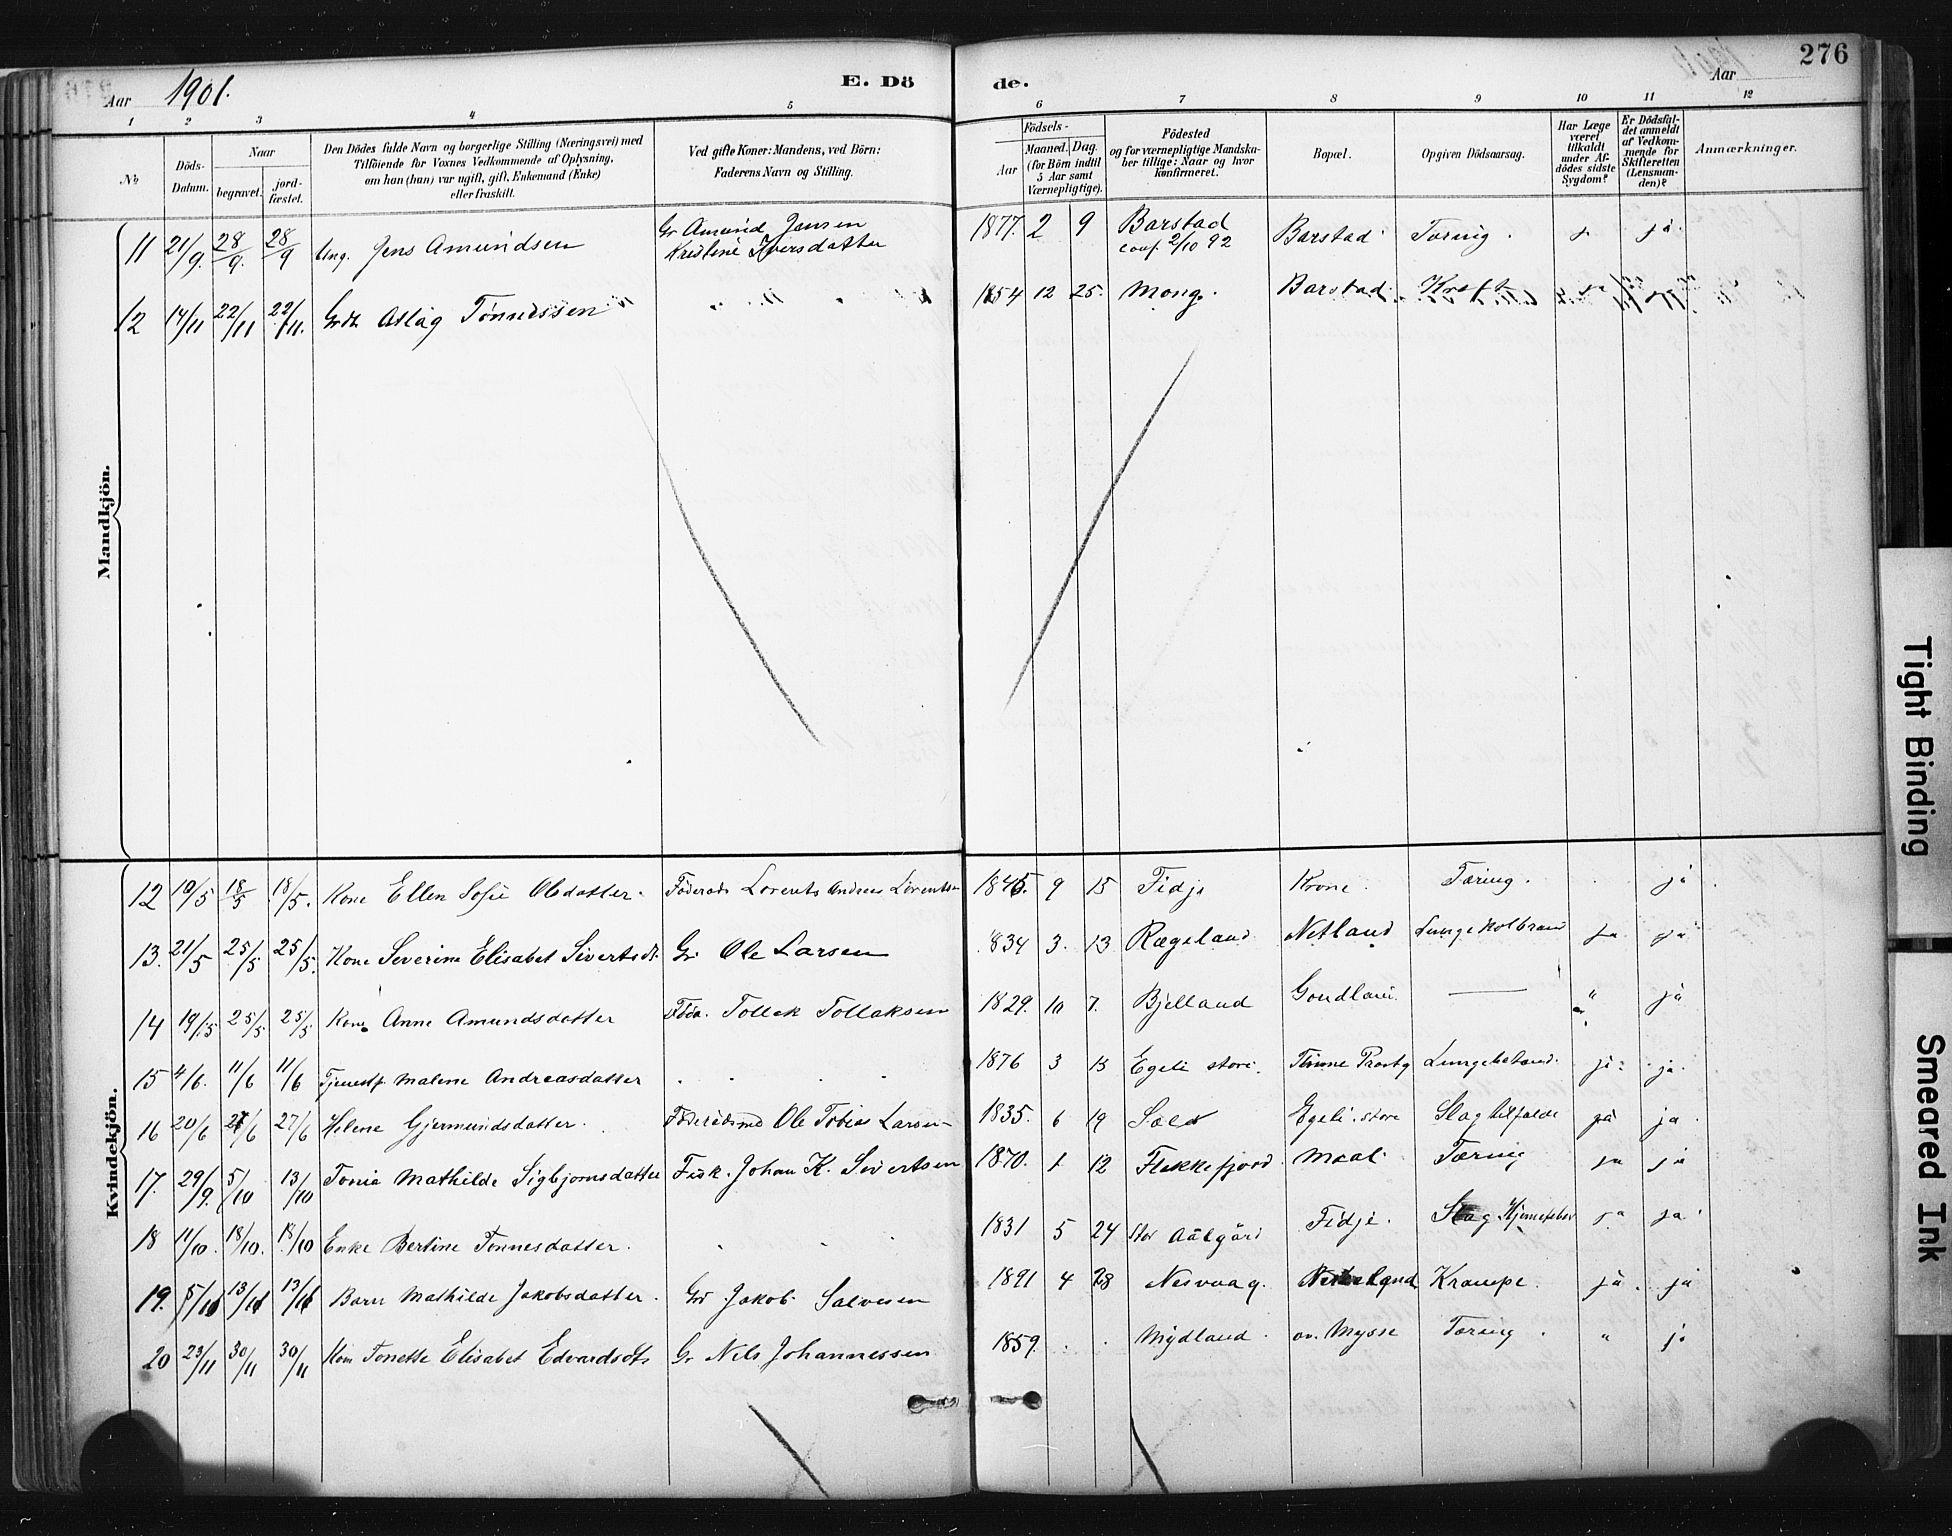 276
Aar 1901.
E. Dö de.
Aar
1 2 3 4 5 6 7 8 9 10 11 12
No
Döds-Datum.
Naar
begravet.
jord-fæstet.
Den Dödes fulde Navn og borgerlige Stilling (Næringsvei) med
Tilföiende for Voxnes Vedkommende af Oplysning,
om han (hun) var ugift, gift, Enkemand (Enke)
eller fraskilt.
Ved gifte Koner: Mandens, ved Börn:
Faderens Navn og Stilling.
Födsels-
Aar
Maaned. Dag.
(for Börn indtil
5 Aar samt
Værnepligtige).
Födested
og for værnepligtige Mandska-
ber tillige: Naar og hvor
konfirmeret.
Bopæl.
Opgiven Dödsaarsag.
Har Læge
været
tilkaldt
under Af-
dödes sidste
Sygdom?
Er Dödsfal-
det anmeldt
af Vedkom-
mende for
Skifteretten
(Lensman-
den)?
Anmærkninger.
Mandkjön.
11 21/9. 28/9. 28/9 Ung. Jens Amundsen Gr Amund Jensen Kristine Iversdatter 1877. 2 9 Barstad conf. 2/10 92 Barstad Tæring. ja.
12 14/11 22/11 22/11. Grdr Aslag Tønnessen 1854 12 25. Mong. Barstad Kreft
Kvindekjön.
12 10/5 18/5 18/5. Kone Ellen Sofie Olsdatter. Föderads Lorents Andreas Lorents 1845. 9 15 Fidje Krone. Tæring. ja.
13. 21/5 25/5 25/5. Kone Severine Elisabet Sivertsdt. Gr. Ole Larsen 1834 3. 13 Rægeland Netland ja ja
14 19/5 25/5 25/5 Kone Anne Amundsdatter Föda. Tollak Tollaksen 1829. 10 7. Bjelland — " ja
15 4/6. 11/6 11/6 Tjenestp Malene Andreasdatter 1876 3 15 Egeli store. ja ja.
16 20/6 27/6 27/6 Helene Gjermundsdatter. Föderådsmd Ole Tobias Larsen 1835. 6 19 Egeli store Slagtilfælde ja ja.
17. 29/9. 5/10 13/10 Tonia Mathilde Sigbjørnsdatter Fisk. Johan K. Sivertsen 1870. 1 12 Flekkefjord Tæring ja ja
18 11/10. 18/10. 18/10 Enke Bertine Tønnesdatter. 1831 5 24 Stor Aalgård Fidje. Slag ja ja
19. 5/11 13/11 13/11 Barn Mathilde Jakobsdatter. Gr Jakob Salvesen 1891 4 28 Nesvaag. Krampe. ja ja
20 23/11 30/11 30/11 Kone Tonette Elisabet Edvardsdtr Gr Nils Johannessen 1859. Mydland. ov. Mysse Tæring. " ja
Tight Binding
Smeared Ink